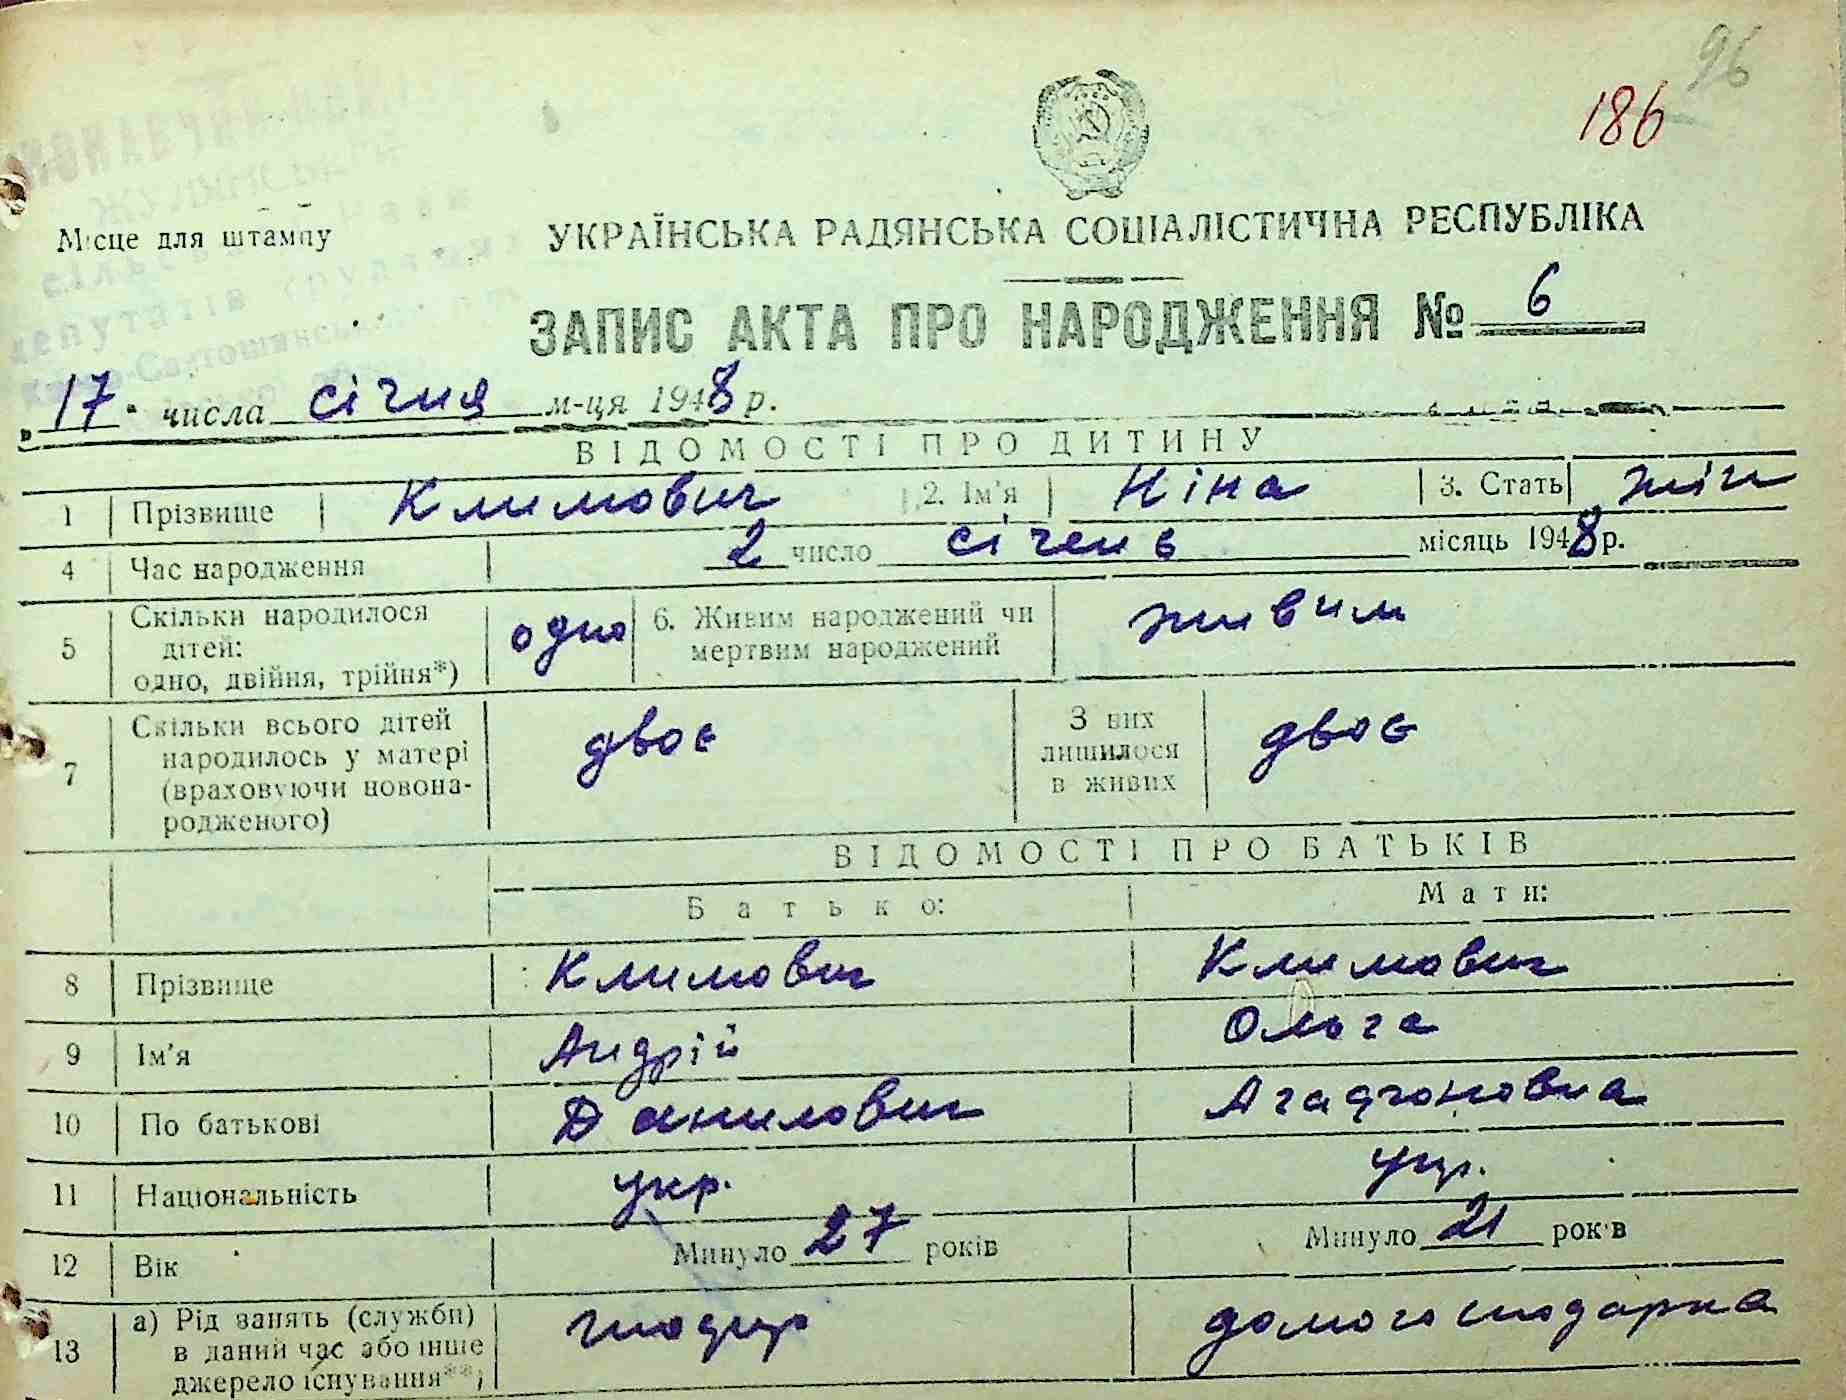 96
186
ЖУЛЯНСЬК
Місце для штампу
УКРАЇНСЬКА РАДЯНСЬКА СОЦІАЛІСТИЧНА РЕСПУБЛІКА
сільськ
депутатів трудящих
Києво-Святошинськ
ЗАПИС АКТА ПРО НАРОДЖЕННЯ № 6
„17" числа січня м-ця 1948 р.
ВІДОМОСТІ ПРО ДИТИНУ
1 Прізвище Климович 2. Ім'я Ніна 3. Стать жін
4 Час народження 2 число січень місяць 1948 р.
5 Скільки народилося дітей: одно, двійня, трійня*) одно 6. Живим народжений чи мертвим народжений живим
7 Скільки всього дітей народилось у матері (враховуючи новонародженого) двоє З них лишилося в живих двоє
ВІДОМОСТІ ПРО БАТЬКІВ
Батько: Мати:
8 Прізвище Климович Климович
9 Ім'я Андрій Ольга
10 По батькові Данилович Агафоновна
11 Національність укр. укр.
12 Вік Минуло 27 років Минуло 21 років
13 а) Рід занять (служби) в даний час або інше джерело існування**) домогосподарка